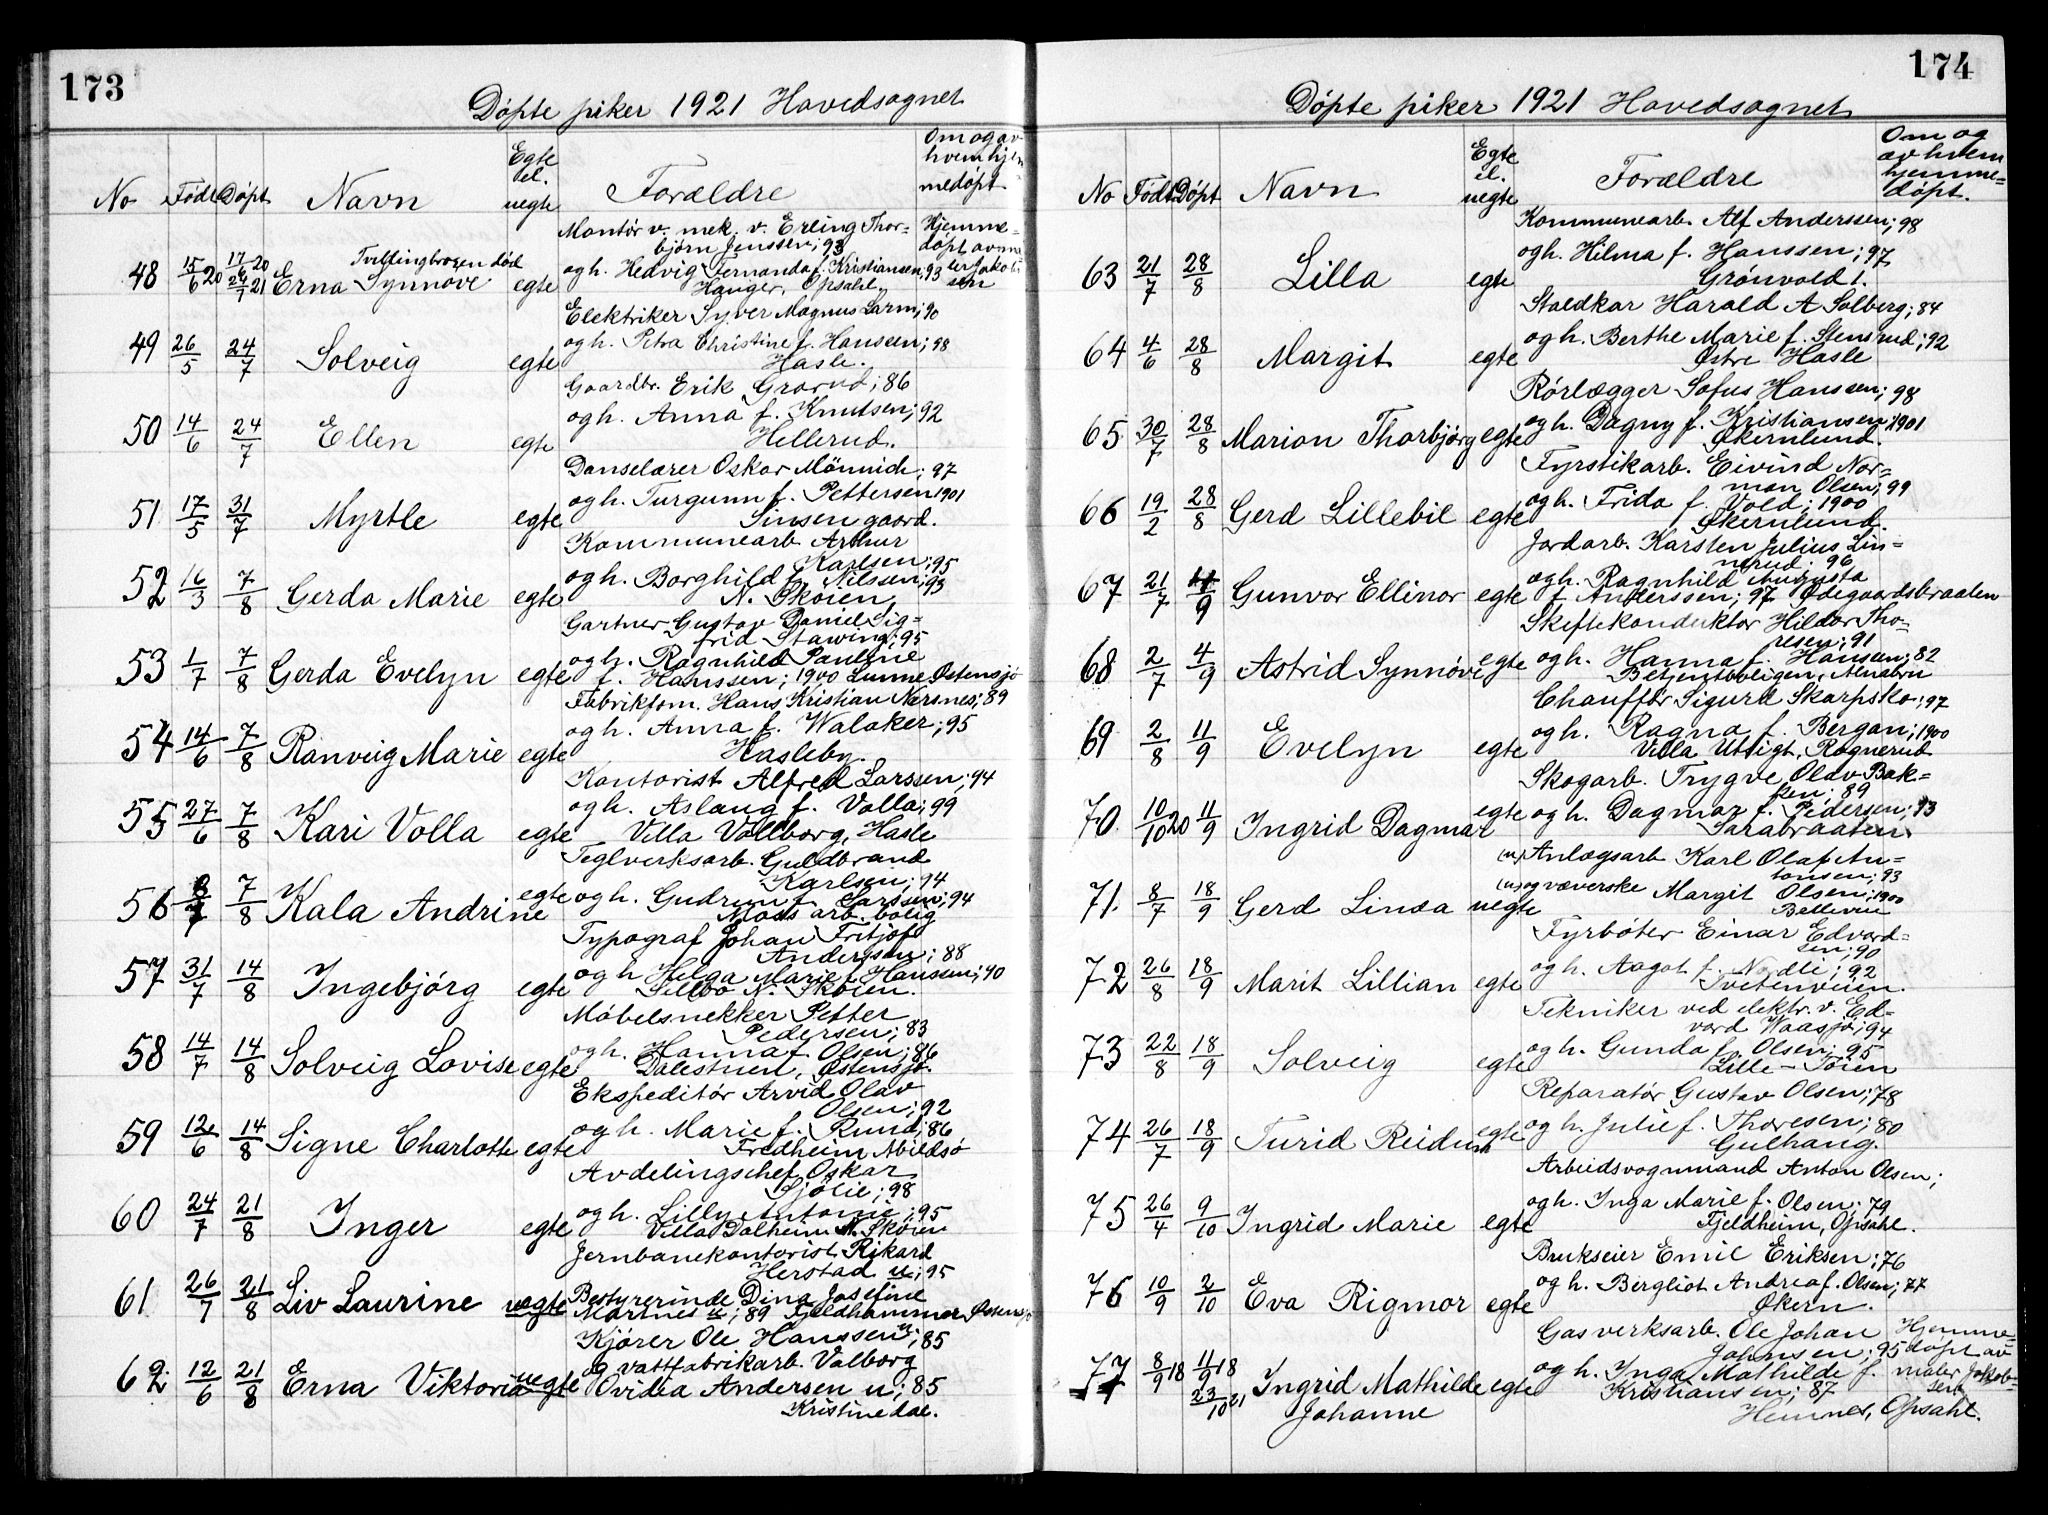 173
Døpte piker 1921 Hovedsognet
No Født Døpt Navn Egte el. uegte Forældre Om og av hvem hjemmedøpt
48 15/6 20 17/6 20 24/7 21 Tvillingbroren død Erna Synnøve egte
Montør v. mek. v. Erling Thor=
bjørn Jenssen; 93
og h. Hedvig Fernanda f. Kristiansen, 93
Hauger, Opsahl.
Hjemme=
døpt av ma
ler Jakob
sen
49 26/5 24/7 Solveig egte
Elektriker Syver Magnus Larm; 90
og h. Petra Christine f. Hansen; 98
Hasle.
50 14/6 24/7 Ellen egte
Gaardbr. Erik Grorud; 86
og h. Anna f. Knutsen; 92
Hellerud.
51 17/5 31/7 Myrtle egte
Danselærer Oskar Mönnich; 97
og h. Turgunn f. Pettersen 1901
Sinsen gaard.
52 16/3 7/8 Gerda Marie egte
Kommunearb. Arthur
Karlsen; 95
og h. Borghild f. Nilsen; 93
N. Skøien
53 1/7 7/8 Gerda Evelyn egte
Gartner Gustav Daniel Sig=
frid Stawing; 95
og h. Ragnhild Pauline
f. Hanssen; 1900 Lunne Østensjø
54 14/6 7/8 Ranveig Marie egte
Fabrikform. Hans Kristian Narsnes; 89
og h. Anna f. Walaker; 95
Hasleby.
55 27/6 7/8 Kari Volla egte
Kontorist Alfred Larssen; 94
og h. Aslaug f. Volla; 99
Villa Vallborg, Hasle
56 7/8 Kala Andrine egte
Teglverksarb. Guldbrand
Karlsen; 94
og h. Gudrun f. Larssen; 94
Moss arb. bolig
57 31/7 14/8 Ingebjørg egte
Typograf Johan Fritjof
Andersen; 88
og h Helga Marie f. Hansen; 90
Lillebo N. Skøien.
58 14/7 14/8 Solveig Lovise egte
Møbelsnekker Petter
Pedersen; 83
og h. Hanna f. Olsen; 86
Dalestuen, Østensjø.
59 12/6 14/8 Signe Charlotte egte
Ekspeditør Arvid Olav
Olsen; 92
og h. Marie f. Rund; 86
Fredheim Abildsø
60 24/7 21/8 Inger egte
Avdelingschef Oskar
Sjølie; 98
og h. Lilly Antonie; 95
Villa Dalheim N. Skøien
61 26/7 21/8 Liv Laurine uegte
Jernbanekontorist Rikard
Herstad u; 95
Bestyrerinde Dina Josefine
Marnes u; 89 Fjeldhammer Østensjø
62 12/6 21/8 Erna Viktoria uegte
Kjører Ole Hanssen u; 85
& vattfabrikarb. Valborg
Ovidia Andersen u; 85
Kristinedal.
174
Døpte piker 1921 Hovedsognet
No Født Døpt Navn Egte el. uegte Forældre Om og av hvem hjemme=døpt.
63 21/7 28/8 Lilla egte
Kommunearb. Alf Anderssen; 98
og h. Hilma f. Hanssen; 97
Grønvold 1.
64 4/6 28/8 Margit egte
Staldkar Harald A Solberg; 84
og h. Berthe Marie f. Stensrud; 92
Østre Hasle
65 30/7 28/8 Marion Thorbjørg egte
Rørlægger Sofus Hanssen; 98
og h. Dagny f. Kristiansen; 1901
Økernlund.
66 19/2 28/8 Gerd Lillebil egte
Fyrstikarb. Eivind Nor=
man Olsen; 99
og h. Frida f. Vold; 1900
Økernlund.
67 21/7 4/9 Gunvor Ellinor egte
Jordarb. Karsten Julius Lin=
nerud; 96
og h. Ragnhild Augusta
f. Anderssen; 97 Ødegaardsbraaten
68 2/7 4/9 Astrid Synnøve egte
Skiftekonduktør Hildor Tho=
resen; 91
og h. Hanna f. Hansen; 82
Betjentboligen, Alnabru
69 2/8 11/9 Evelyn egte
Chauffør Sigurd Skarpsko; 97
og h. Ragna f. Bergan; 1900
Villa Utsigt, Rognerud
70 10/10 20 11/9 Ingrid Dagmar egte
Skogarb. Trygve Olav Bak=
ken; 89
og h. Dagmar f. Pedersen; 93
Sarabraaten
71. 8/7 18/9 Gerd Linda uegte
(u) Anlægsarb Karl Olaf An=
tonsen; 93
(u) og væverske Margit Olsen; 1900
Bellevue
72 26/8 18/9 Marit Lillian egte
Fyrbøter Einar Edvard=
sen; 90
og h. Aagot f. Nordli; 92
Tvetenveien.
73 22/8 18/9 Solveig egte
Tekniker ved elektr. v. Ed=
vard Waasjø; 94
og h. Gunda f. Olsen; 95
Lille-Tøien
74 26/7 18/9 Turid Reidun egte
Reparatør Gustav Olsen; 78
og h. Julie f. Thoresen; 80
Gulhaug.
75 26/4 9/10 Ingrid Marie egte
Arbeidsvognmand Anton Olsen;
og h. Inga Marie f. Olsen; 79
Fjeldheim, Opsahl.
76 10/9 2/10 Eva Rigmor egte
Brukseier Emil Eriksen; 76
og h. Bergliot Andrea f. Olsen; 77
Økern.
77 8/9 18 11/9 18 23/10 21 Ingrid Mathilde Johanne egte
Gasverksarb. Ole Johan
Johnsen; 95
og h. Inga Mathilde f.
Kristiansen; 87
Hemnes, Opsahl.
Hjemme=
døpt av
maler Jakob=
sen